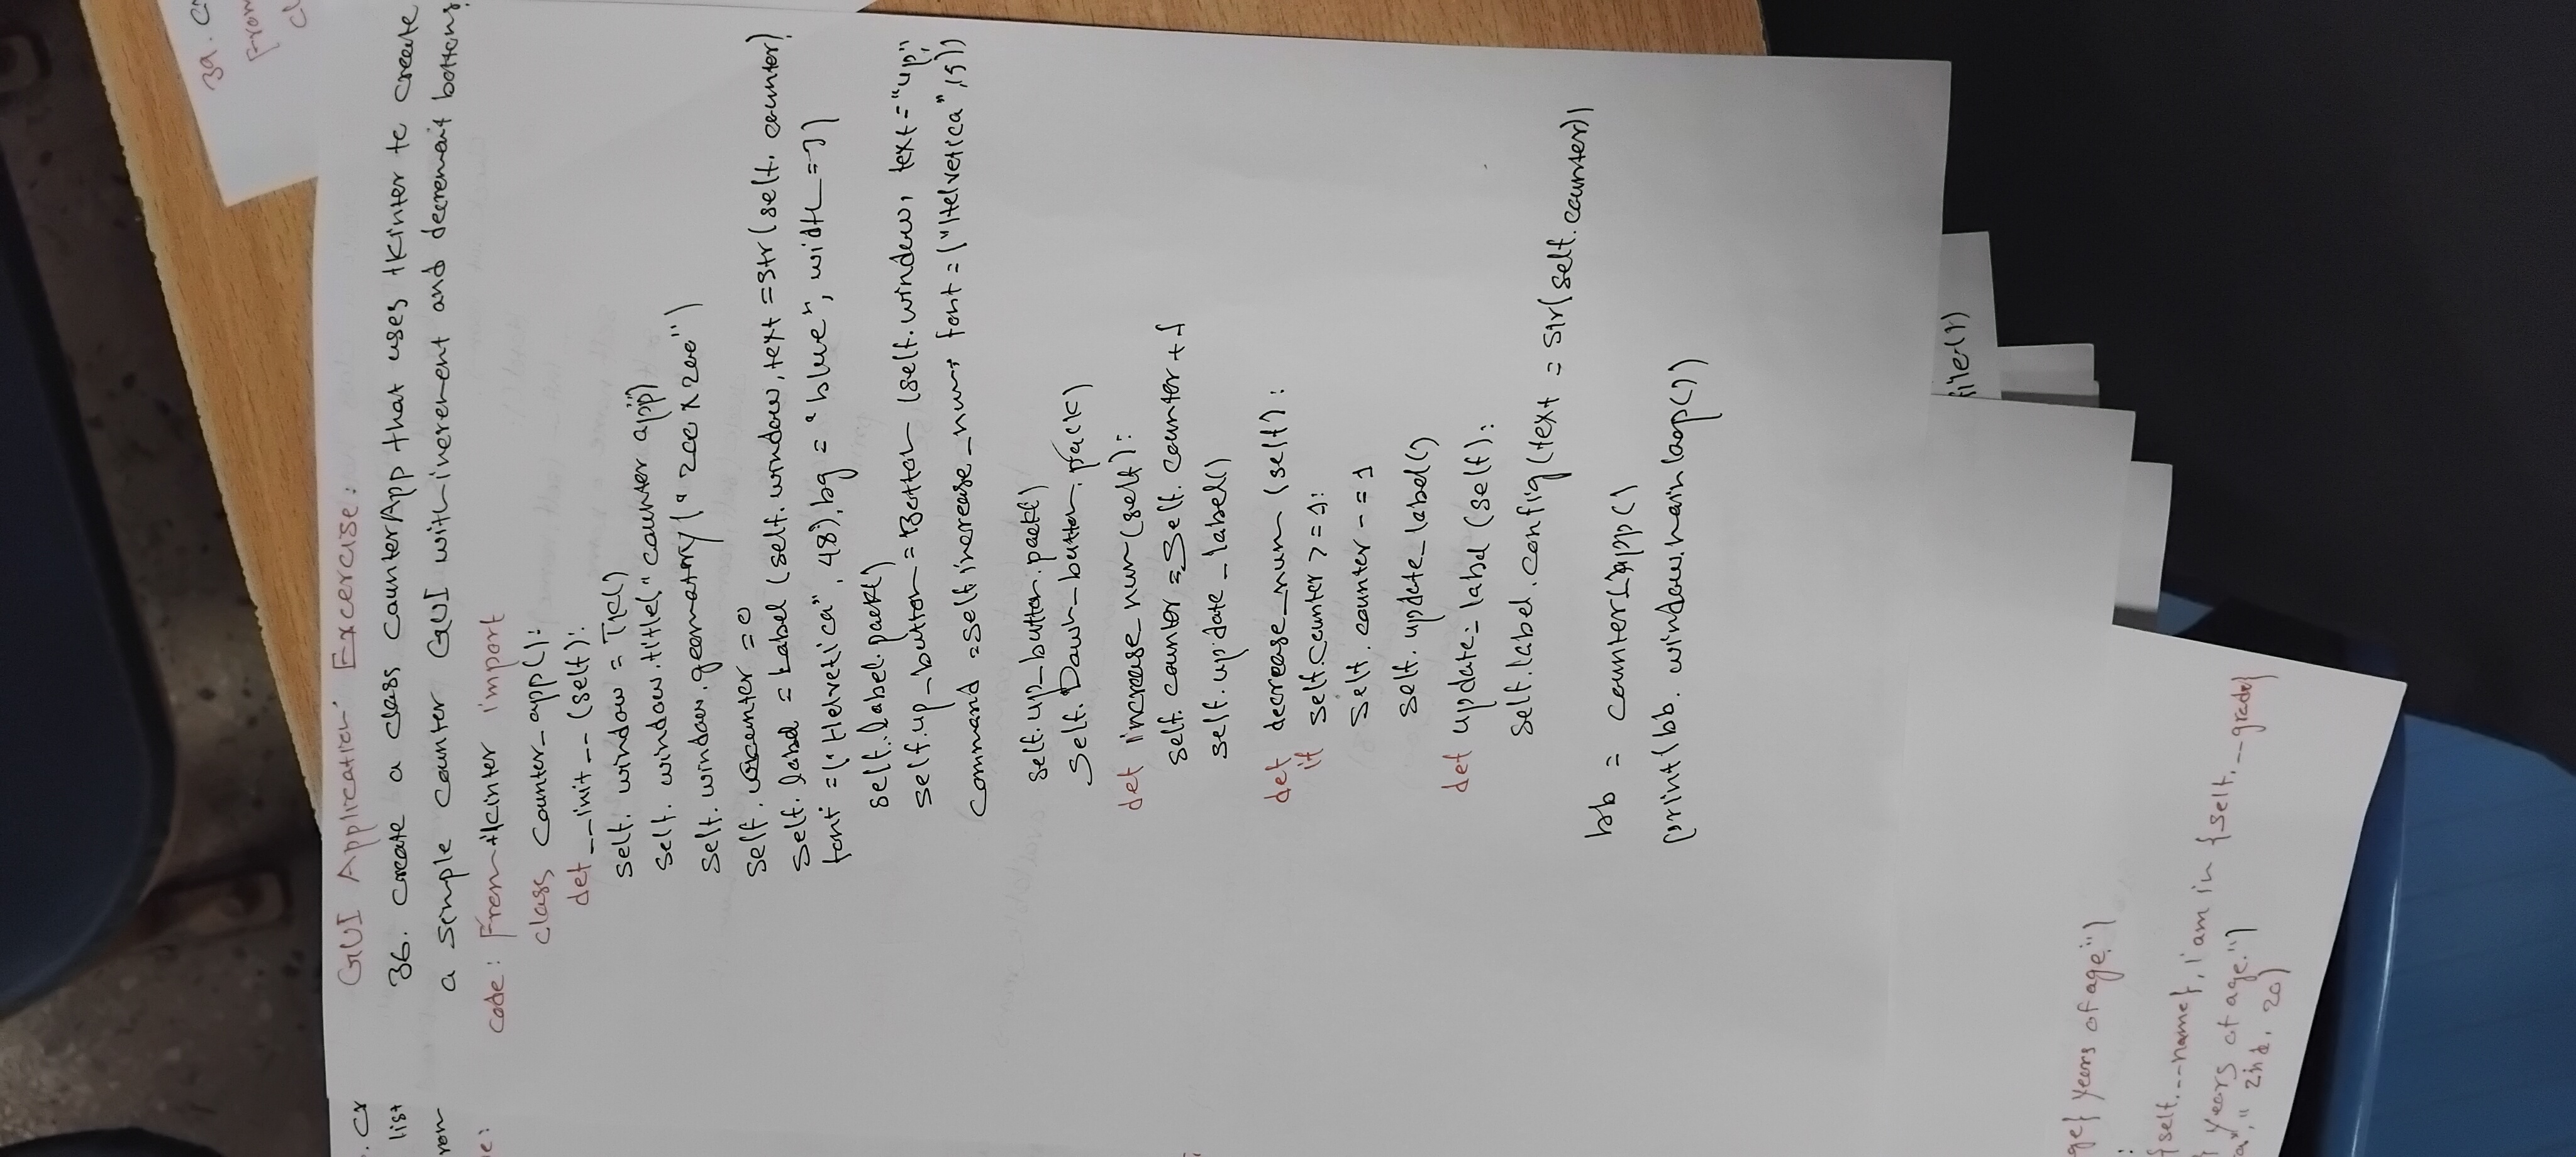 39. Cr
From
cl
. Cr
list
rom
e:
GUI Application Excercise:
36. Create a class CounterApp that uses tkinter to create
a simple counter GUI with increment and decrement bottons
code: From tkinter import
class Counter_app():
def __init__ (self):
self. window = TK()
self. window.title(" counter app")
self. window. geomatory (" 200 x 200")
self. counter = 0
self. label = Label (self. window, text = str (self. counter)
font = (" Helvetica", 48), bg = "blue", width = 7)
self. label. pack()
self.up_button = Botton (self. window, text = "up",
Command = self increase_num, font = ("Helvetica", 15))
self. up_button. pack()
self. Down_button. pack)
def increase_num (self):
self. counter = self. counter + 1
self. update _ label()
def decrease_num (self):
if self. counter >= 1:
self. counter -= 1
self. update_label()
def update= label (self):
self. label. config (text = str(self. counter))
bb = app()
print(bb. window.mainloop())
file(1)
ge} years of age.")
:
{self.__name}, i am in {self.__grade}
years of age.")
a", " 2nd, 20)